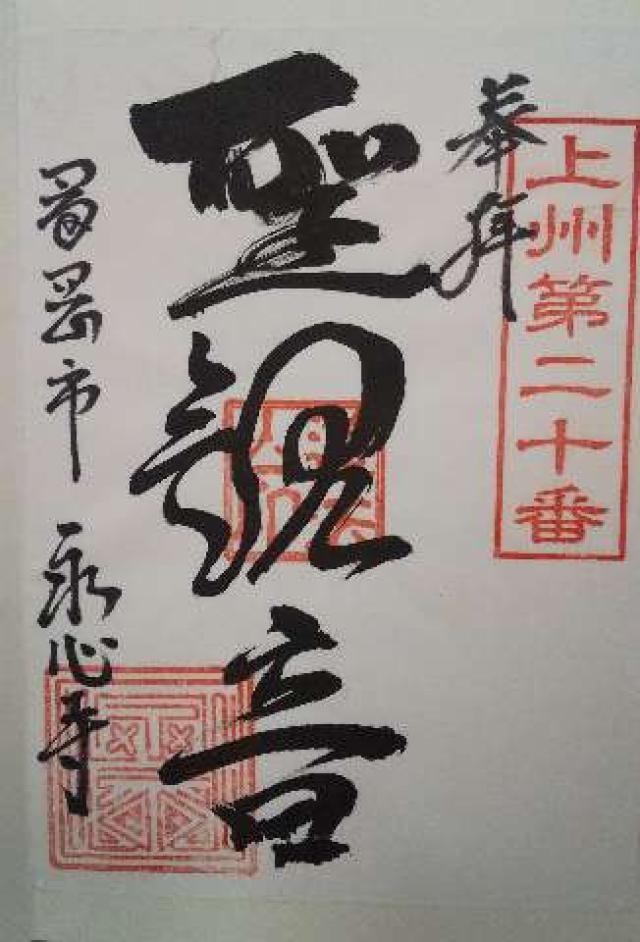 上州第二十番
奉拝
聖観音
冨岡市 永心寺